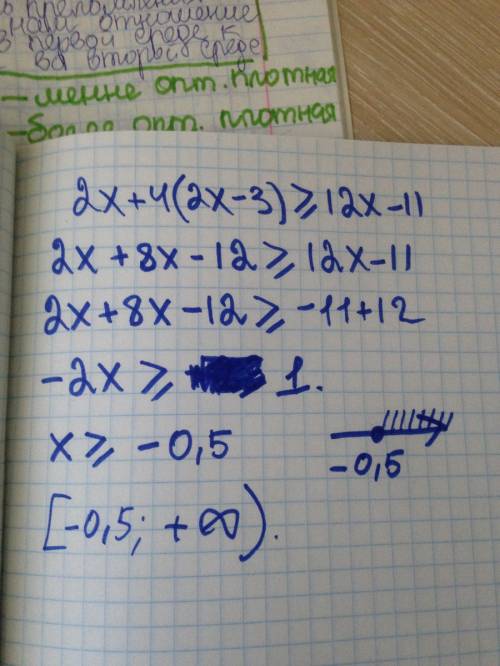 нали отношение
в первой среде к
во второй среде
– менне опт. плотная
– более опт. плотная
2x+4(2x-3)⩾12x-11
2x+8x-12⩾12x-11
2x+8x-12⩾-11+12
-2x⩾ 1.
x⩾-0,5
-0,5
[-0,5; +∞).